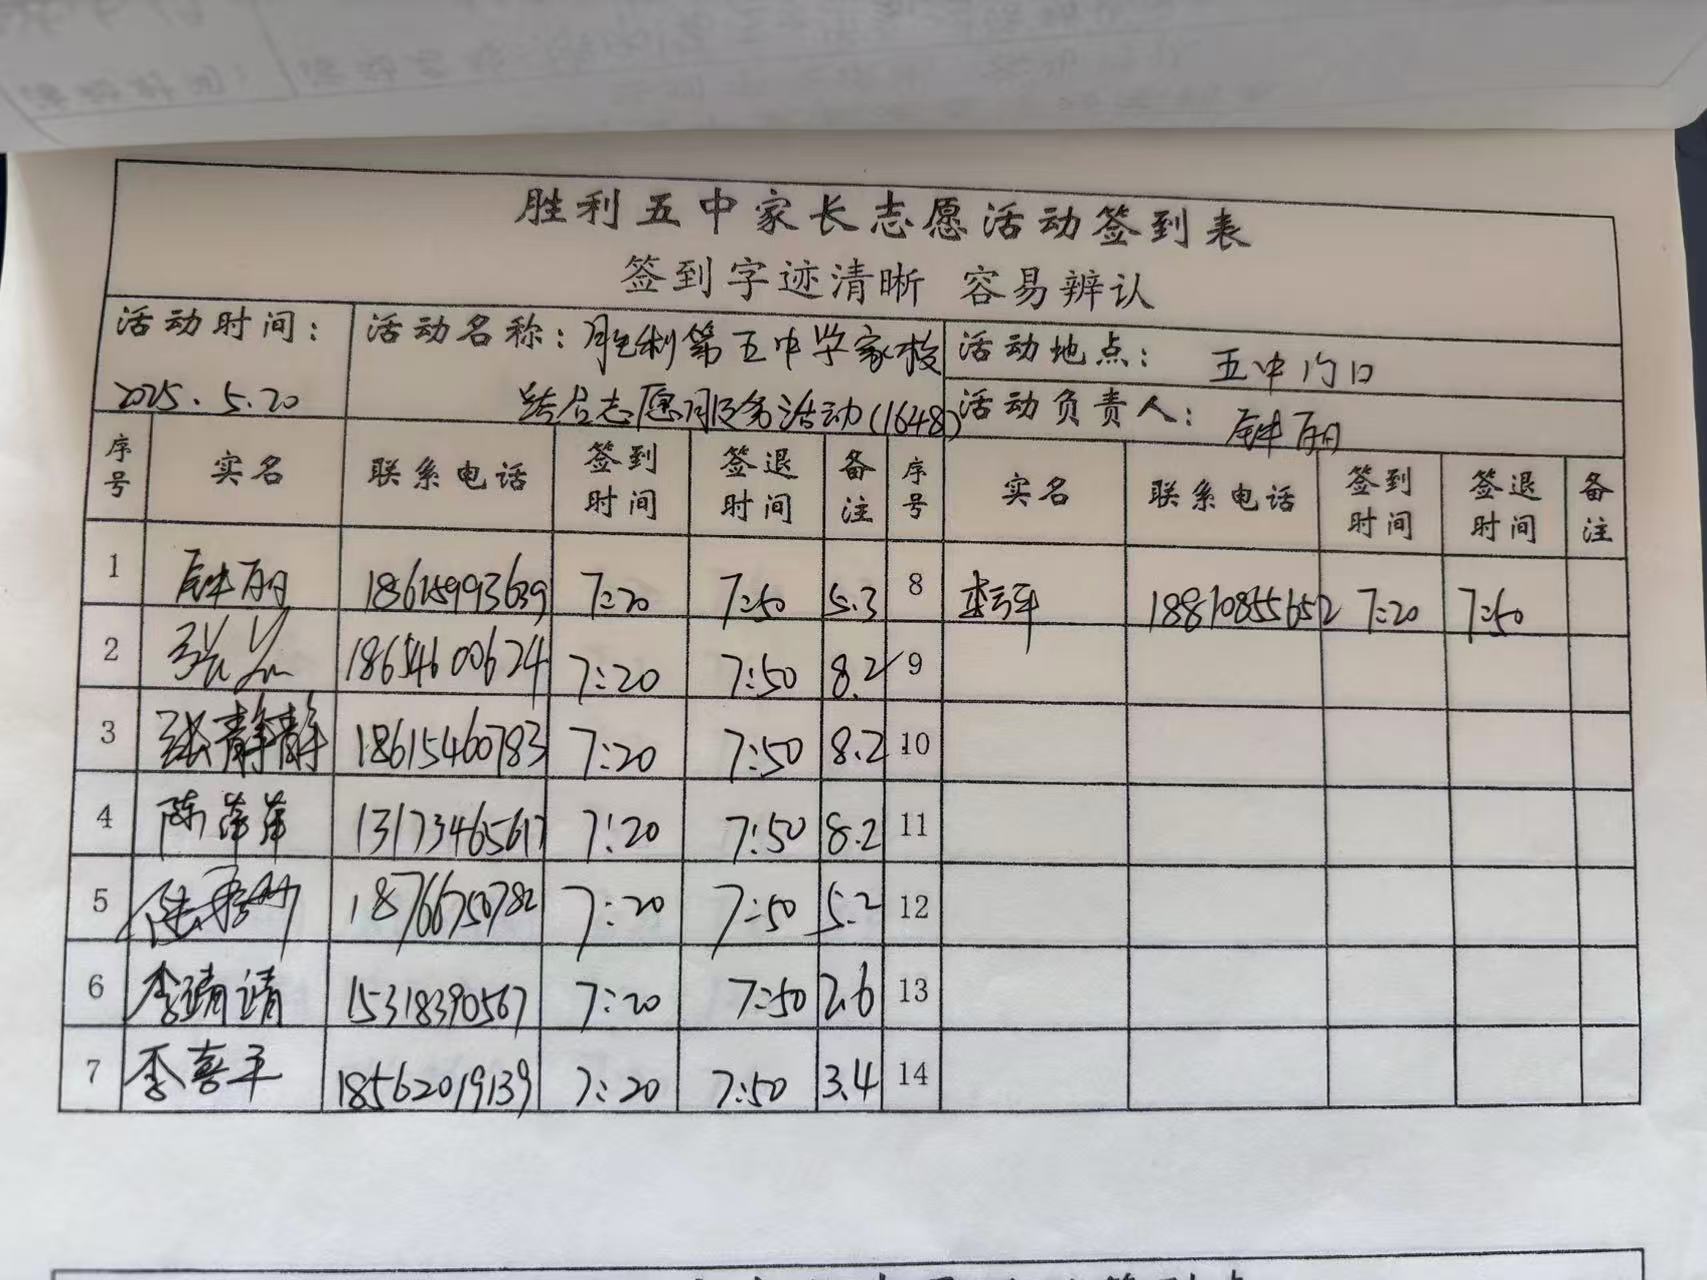 胜利五中家长志愿活动签到表
签到字迹清晰 容易辨认
活动时间: 2025.5.20
活动名称: 胜利第五中学家校
志愿服务活动(1648)
活动地点: 五中门口
活动负责人: 钟丽
序号 实名 联系电话 签到时间 签退时间 备注 序号 实名 联系电话 签到时间 签退时间 备注
1 钟丽 18615993639 7:20 7:50 5.3 8 18810855652 7:20 7:50
2 张 18654600624 7:20 7:50 8.2 9
3 张静静 18615460783 7:20 7:50 8.2 10
4 陈萍萍 13173465617 7:20 7:50 8.2 11
5 18766750782 7:20 7:50 5.2 12
6 李靖靖 15318390567 7:20 7:50 2.6 13
7 李喜平 18562019139 7:20 7:50 3.4 14